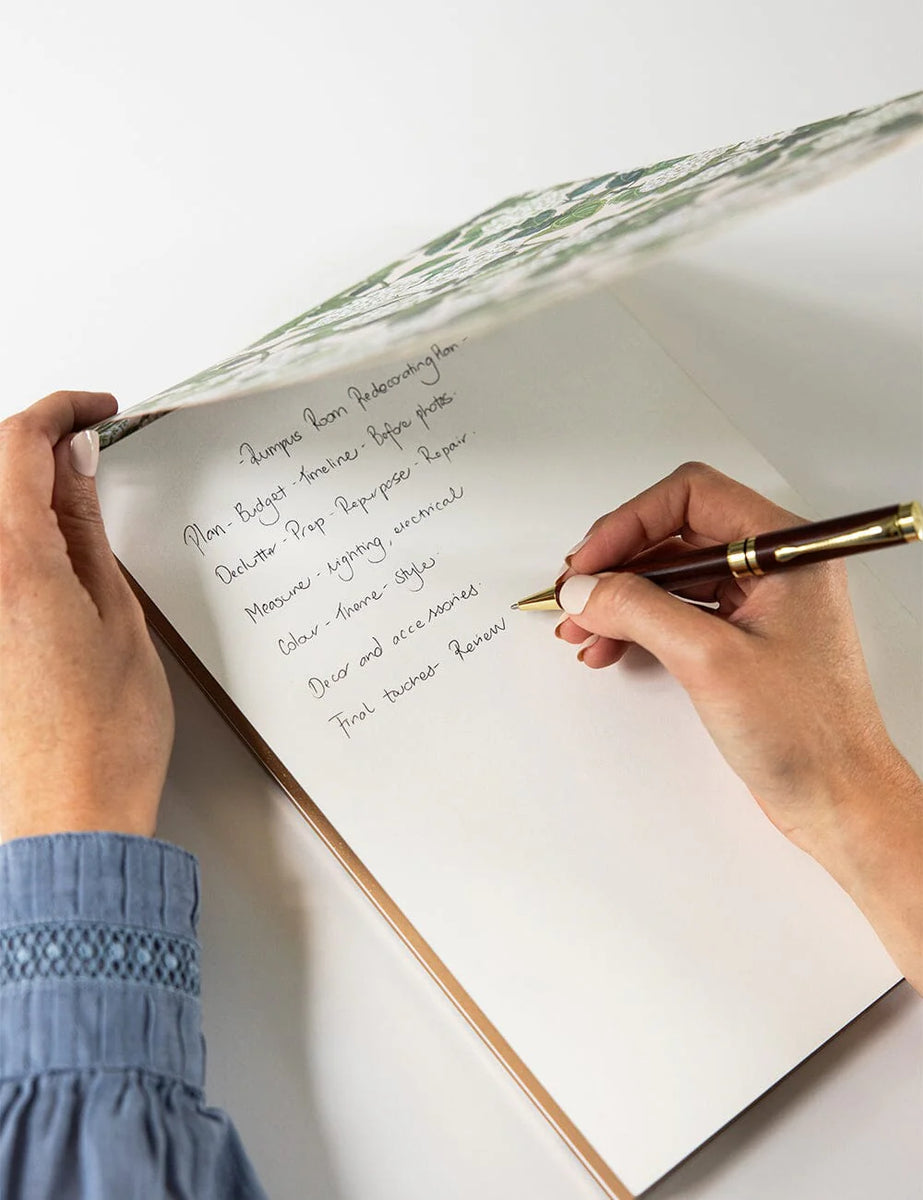 - Rumpus Room Redecorating Plan -
Plan - Budget - Timeline - Before photos.
Declutter - Prep - Repurpose - Repair.
Measure - Lighting, electrical
Colour - Theme - Style.
Decor and accessories.
Final touches - Review